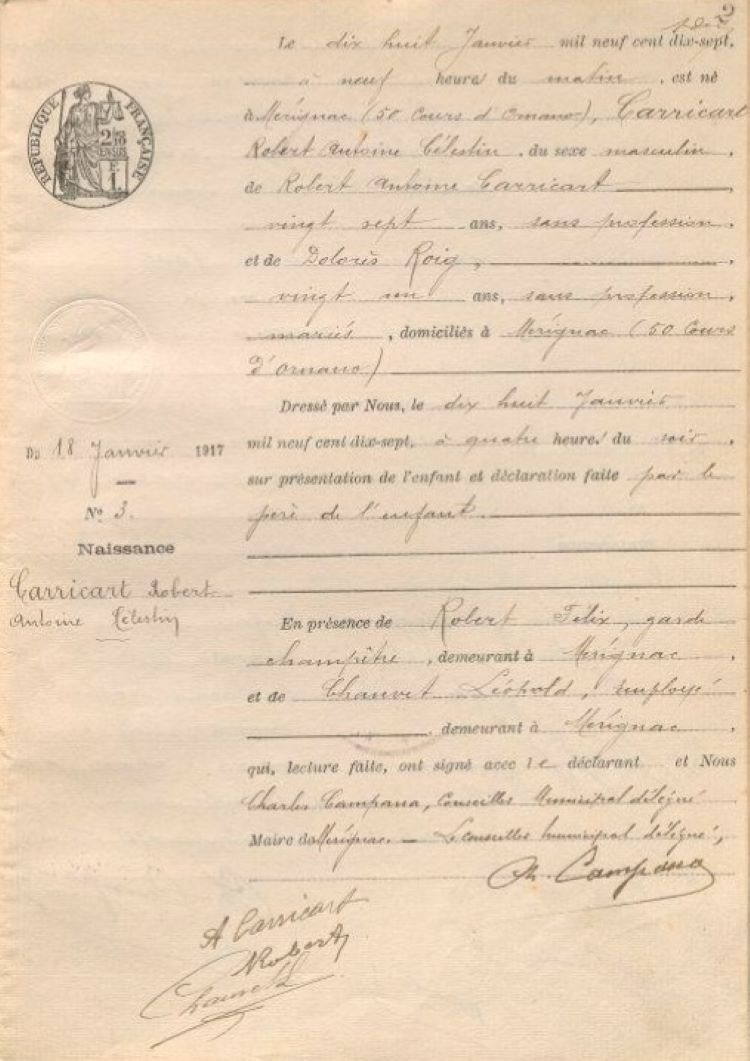 2
RÉPUBLIQUE FRANÇAISE
2/10 EN SUS
F
1.
Le dix huit Janvier mil neuf cent dix-sept,
à neuf heure du matin, est né
à Mérignac (50 Cours d'Ornano), Carricart
Robert Antoine Célestin, du sexe masculin,
de Robert Antoine Carricart
vingt sept ans, sans profession,
et de Dolorès Roig,
vingt un ans, sans profession,
mariés, domiciliés à Mérignac (50 Cours
d'Ornano)
Dressé par Nous, le dix huit Janvier
mil neuf cent dix-sept, à quatre heure du soir,
sur présentation de l'enfant et déclaration faite par le
père de l'enfant.
Du 18 Janvier 1917
No 3.
Naissance
Carricart Robert
Antoine Célestin
En présence de Robert Felix, garde
champêtre, demeurant à Mérignac
et de Chauvet Léopold, employé
, demeurant à Mérignac,
qui, lecture faite, ont signé avec le déclarant et Nous
Charles Campana, Conseiller Municipal délégué
Maire de Mérignac. — Le conseiller municipal délégué,
Ch. Campana
A Carricart
Robert
Chauvet